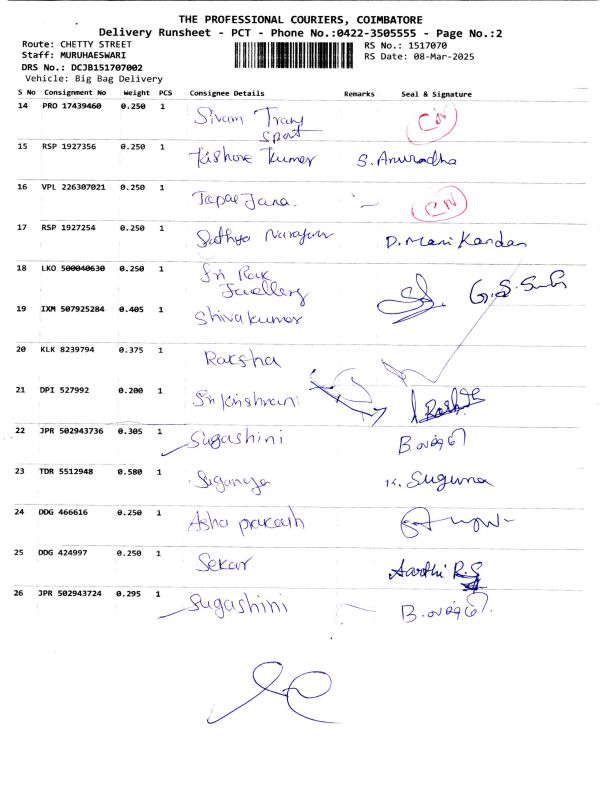 THE PROFESSIONAL COURIERS, COIMBATORE
Delivery Runsheet - PCT - Phone No.:0422-3505555 - Page No.:2
Route: CHETTY STREET RS No.: 1517070
Staff: MURUHAESWARI RS Date: 08-Mar-2025
DRS No.: DCJB151707002
Vehicle: Big Bag Delivery
S No Consignment No Weight PCS Consignee Details Remarks Seal & Signature
14 PRO 17439460 0.250 1 Sivam Trans
sport
15 RSP 1927356 0.250 1 Kishore Kumar S. Anuradha
16 VPL 226307021 0.250 1
17 RSP 1927254 0.250 1 Sathya Narayan D. Mani Kandan
18 LKO 500040630 0.250 1 Sri
Jewellery
19 IXM 507925284 0.405 1 Shiva kumar
20 KLK 8239794 0.375 1 Raksha
21 DPI 527992 0.200 1 Sri
22 JPR 502943736 0.305 1 Sugashini B.
23 TDR 5512948 0.580 1 Suganya K. Suguna
24 DDG 466616 0.250 1 Asha prakash
25 DDG 424997 0.250 1 Sekar Aarthi R.S
26 JPR 502943724 0.295 1 Sugashini B.